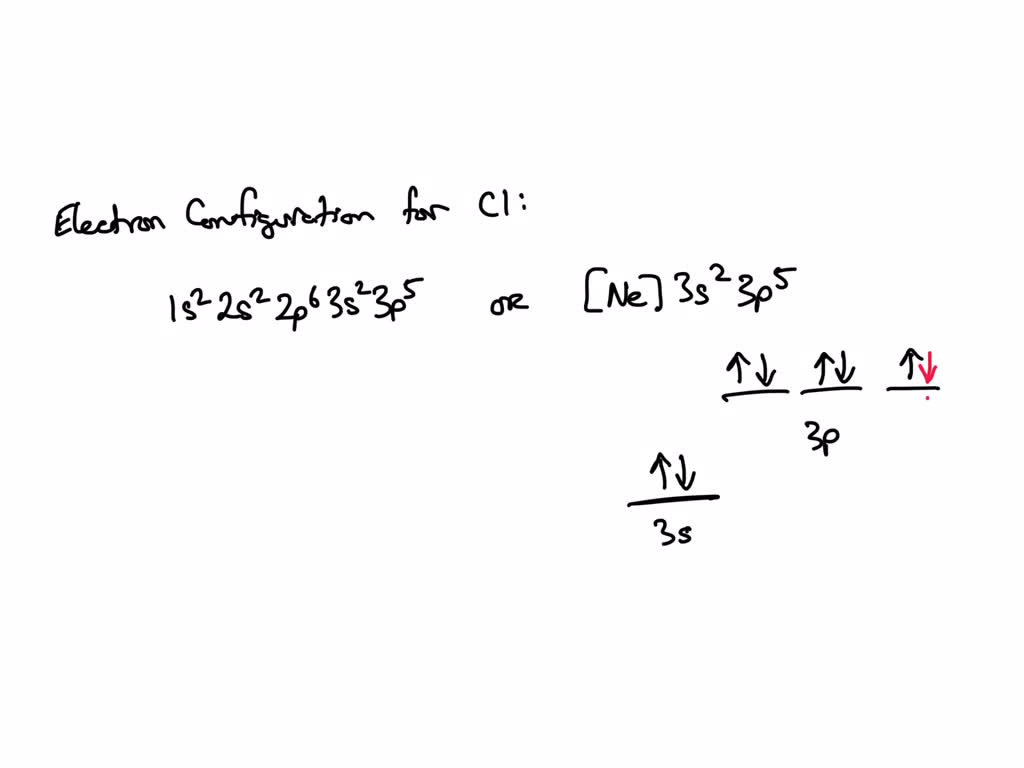 Electron Configuration for Cl:
1s² 2s² 2p⁶ 3s² 3p⁵ or [Ne] 3s² 3p⁵
↑↓ ↑↓ ↑↓
3p
↑↓
3s